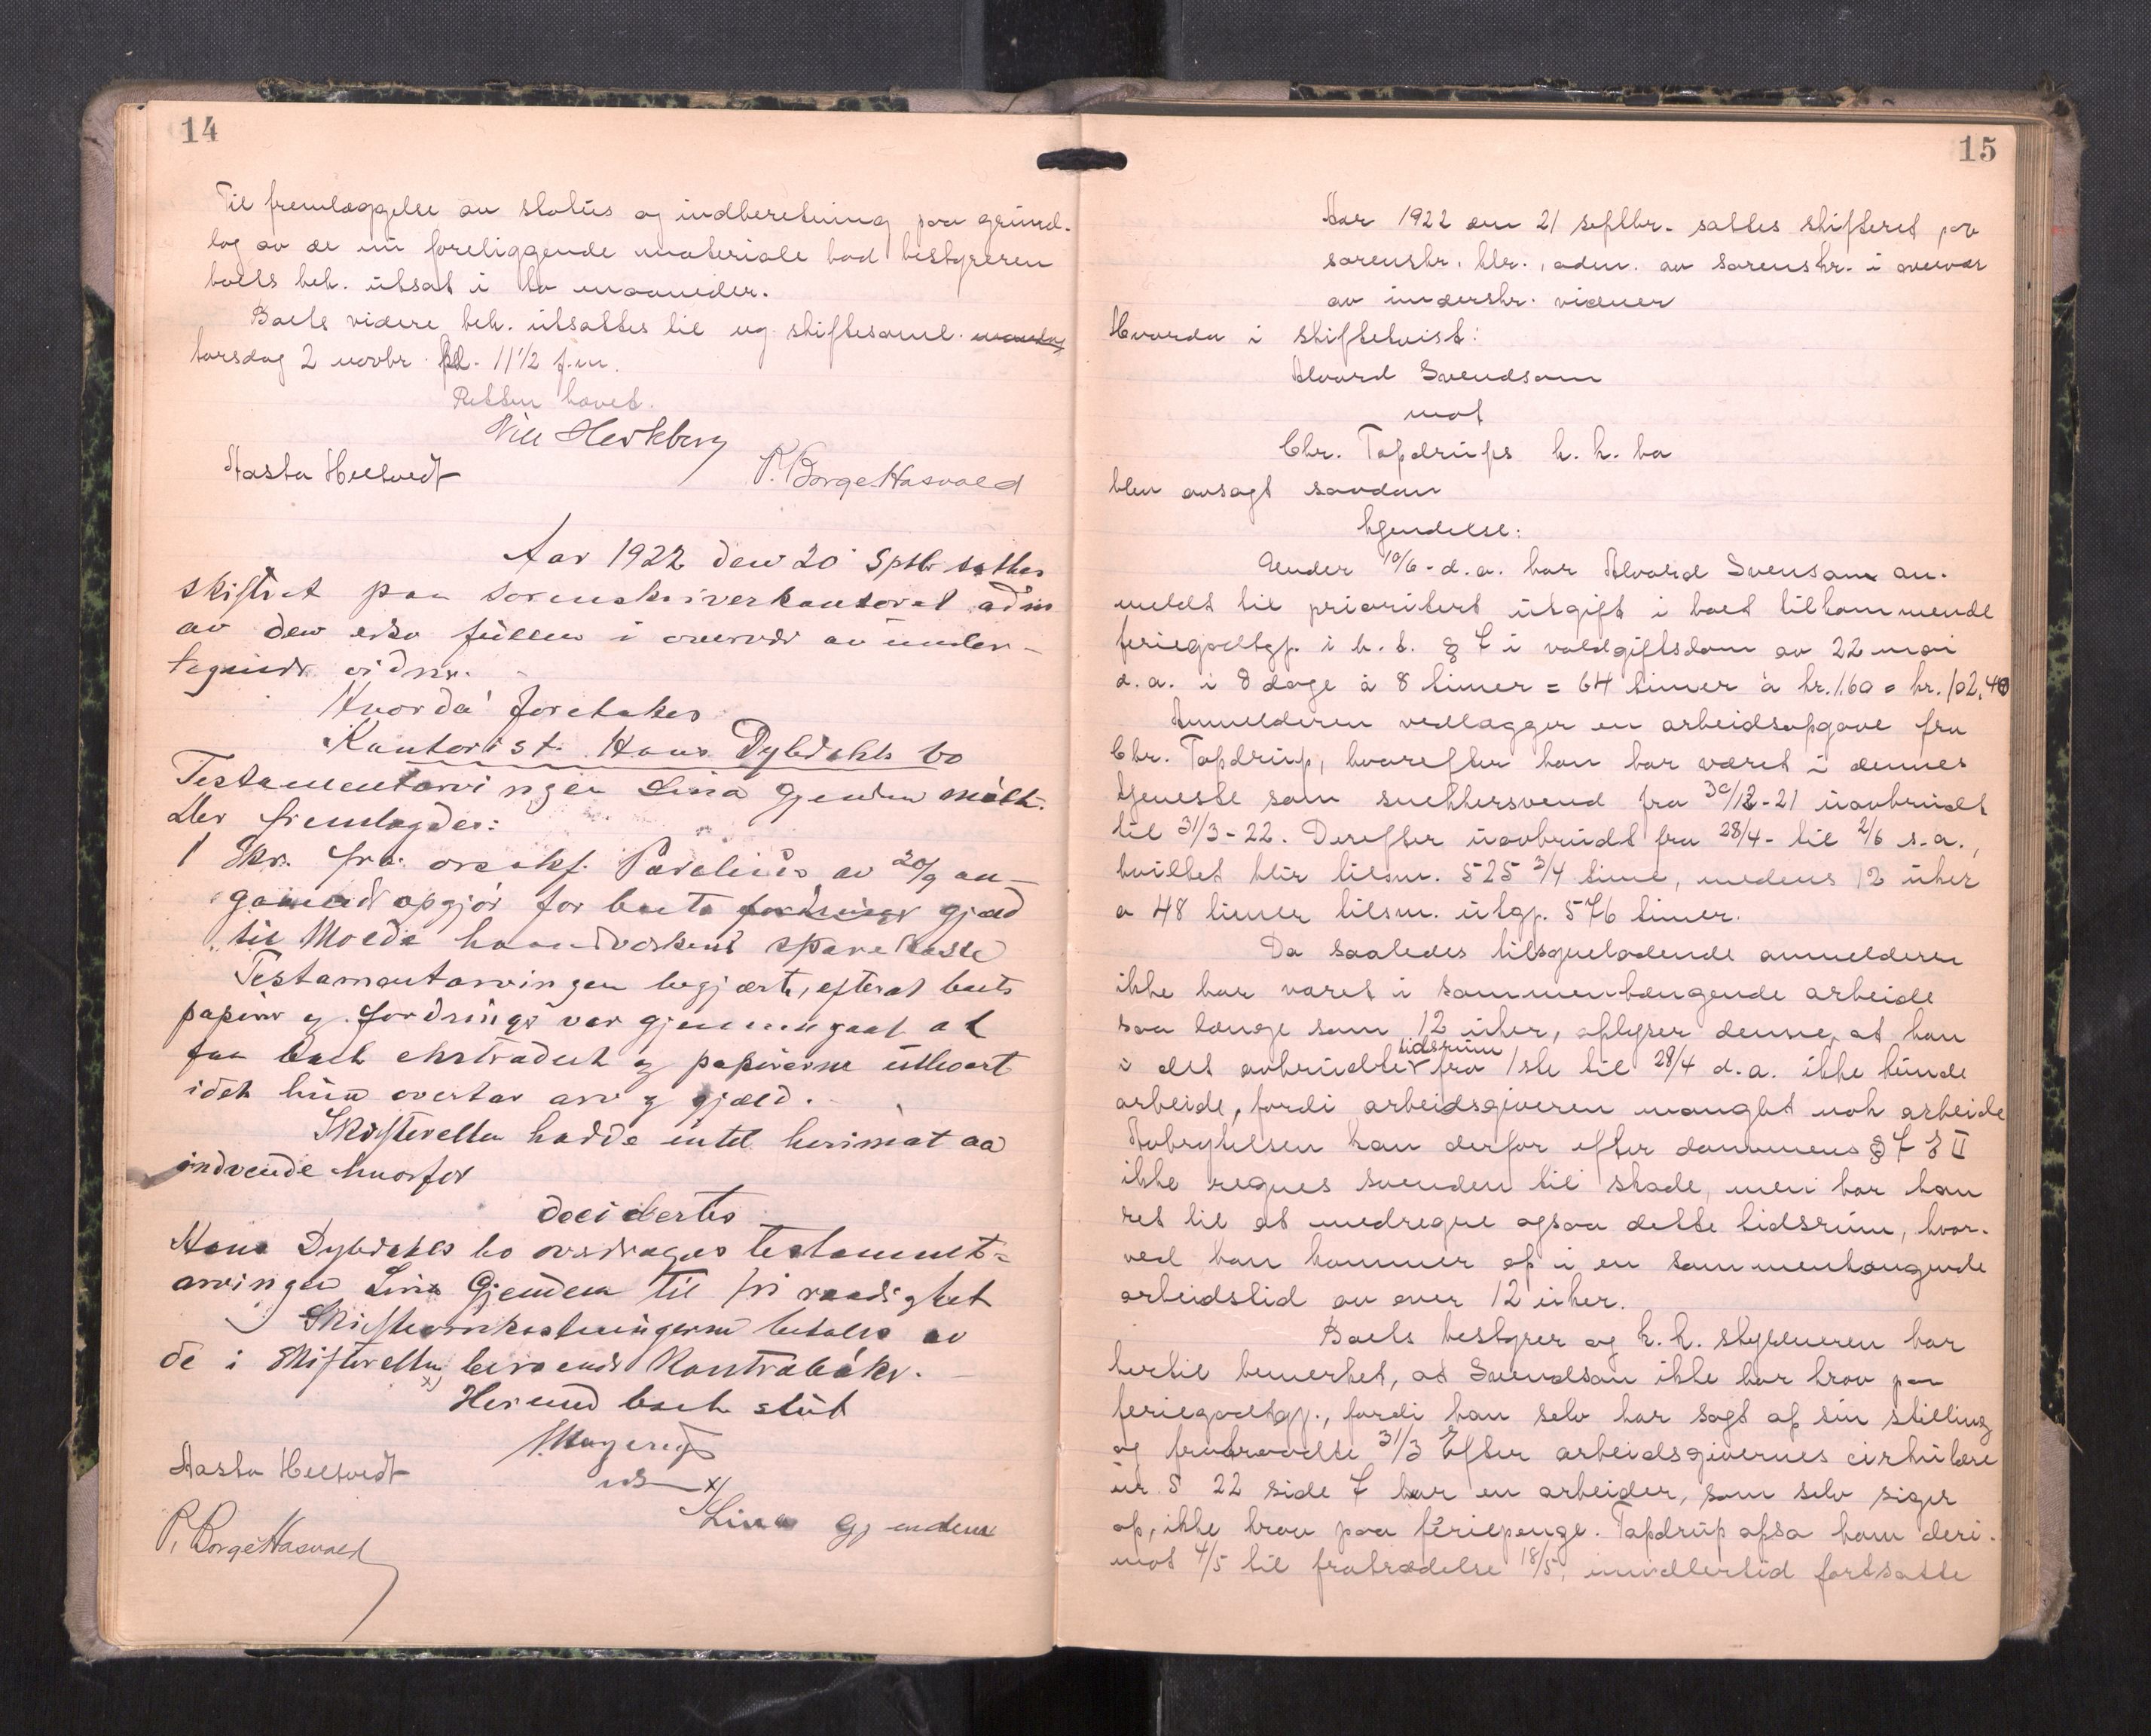 14
Til fremlæggelse av status og indberetning paa grund-
lag av de nu foreliggende materiale bad bestyreren
boets beh. utsat i to maaneder.
Boets videre beh. utsattes til ny skiftesaml. mandag
torsdag 2 novbr. kl. 11 1/2 f.m.
Retten hævet.
Aasta Heltvedt
P. Borge Hasvold
Aar 1922 den 20 Sptbr sattes
skifteret paa sorenskriverkontoret adm
av den edsv fuldm i overvær av under-
tegnede vidner.
Hvorda' foretokes
Kontorist Hans Dybdahls bo
Testamentarvingen Lina Gjendem møtte.
Der fremlagdes:
1 Skr. fra oresakf. av 20/9 an-
gaaende opgjør for boets fordringer gjæld
til Molde haandverkeres sparekasse
Testamentarvingen begjærte, efterat boets
papirer og fordringer var gjennemgaat at
faa boet ekstradert og papirerne utlevert
idet hun overtar arv og gjæld.
Skifteretten hadde intet herimot aa
indvende hvorfor
decidertes
Hans Dybdahls bo overdrages testament-
arvingen Lina Gjendem til fri raadighet
Skifteomkostningerne betales av
de i skifteretten beroende kontrabøker.
x)
Hermed boet slut
x)
Lina Gjendem
Aasta Heltvedt
P. Borge Hasvold
15
Aar 1922 den 21 septbr. sattes skifteret paa
sorenskr. ktr., adm. av sorenskr. i overvær
av underskr. vidner
Hvorda i skiftetvist:
Alvard Svendsen
mot
Chr. Tapdrups k. k. bo
blev avsagt saadan
kjendelse:
Under 10/6 - d.a. har Alvard Svensen an-
meldt til prioritert utgift i boet tilkommende
feriegodtgj. i h. t. § 7 i voldgiftsdom av 22 mai
d.a. i 8 dage à 8 timer = 64 timer à kr. 1.60 = kr. 102,40
Anmelderen vedlægger en arbeidsopgave fra
Chr. Tapdrup, hvorefter han har været i dennes
tjeneste som snekkersvend fra 30/12-21 uavbrudt
til 31/3-22. Derefter uavbrudt fra 28/4 - til 2/6 s.a.,
hvilket blir tilsm. 525 3/4 time, medens 12 uker
a 48 timer tilsm. utgj. 576 timer.
Da saaledes tilsynelatende anmelderen
ikke har været i sammenhængende arbeide
saa længe som 12 uker, oplyser denne, at han
i det avbrudte tidsrum fra 1ste til 28/4 d.a. ikke kunde
arbeide, fordi arbeidsgiveren manglet nok arbeide
Avbrytelsen kan derfor efter dommens § 7 II
ikke regnes svenden til skade, men har han
ret til at medregne ogsaa dette tidsrum, hvor-
ved han kommer op i en sammenhængende
arbeidstid av over 12 uker.
Boets bestyrer og k. k. styreren har
hertil bemerket, at Svendsen ikke har krav paa
feriegodtgj., fordi han selv har sagt op sin stilling
og fratraadte 31/3 Efter arbeidsgivernes cirkulære
nr. 5 22 side 7 har en arbeider, som selv siger
op, ikke krav paa feriepenge. Tapdrup opsa ham deri-
mot 4/5 til fratrædelse 18/5, imidlertid fortsatte